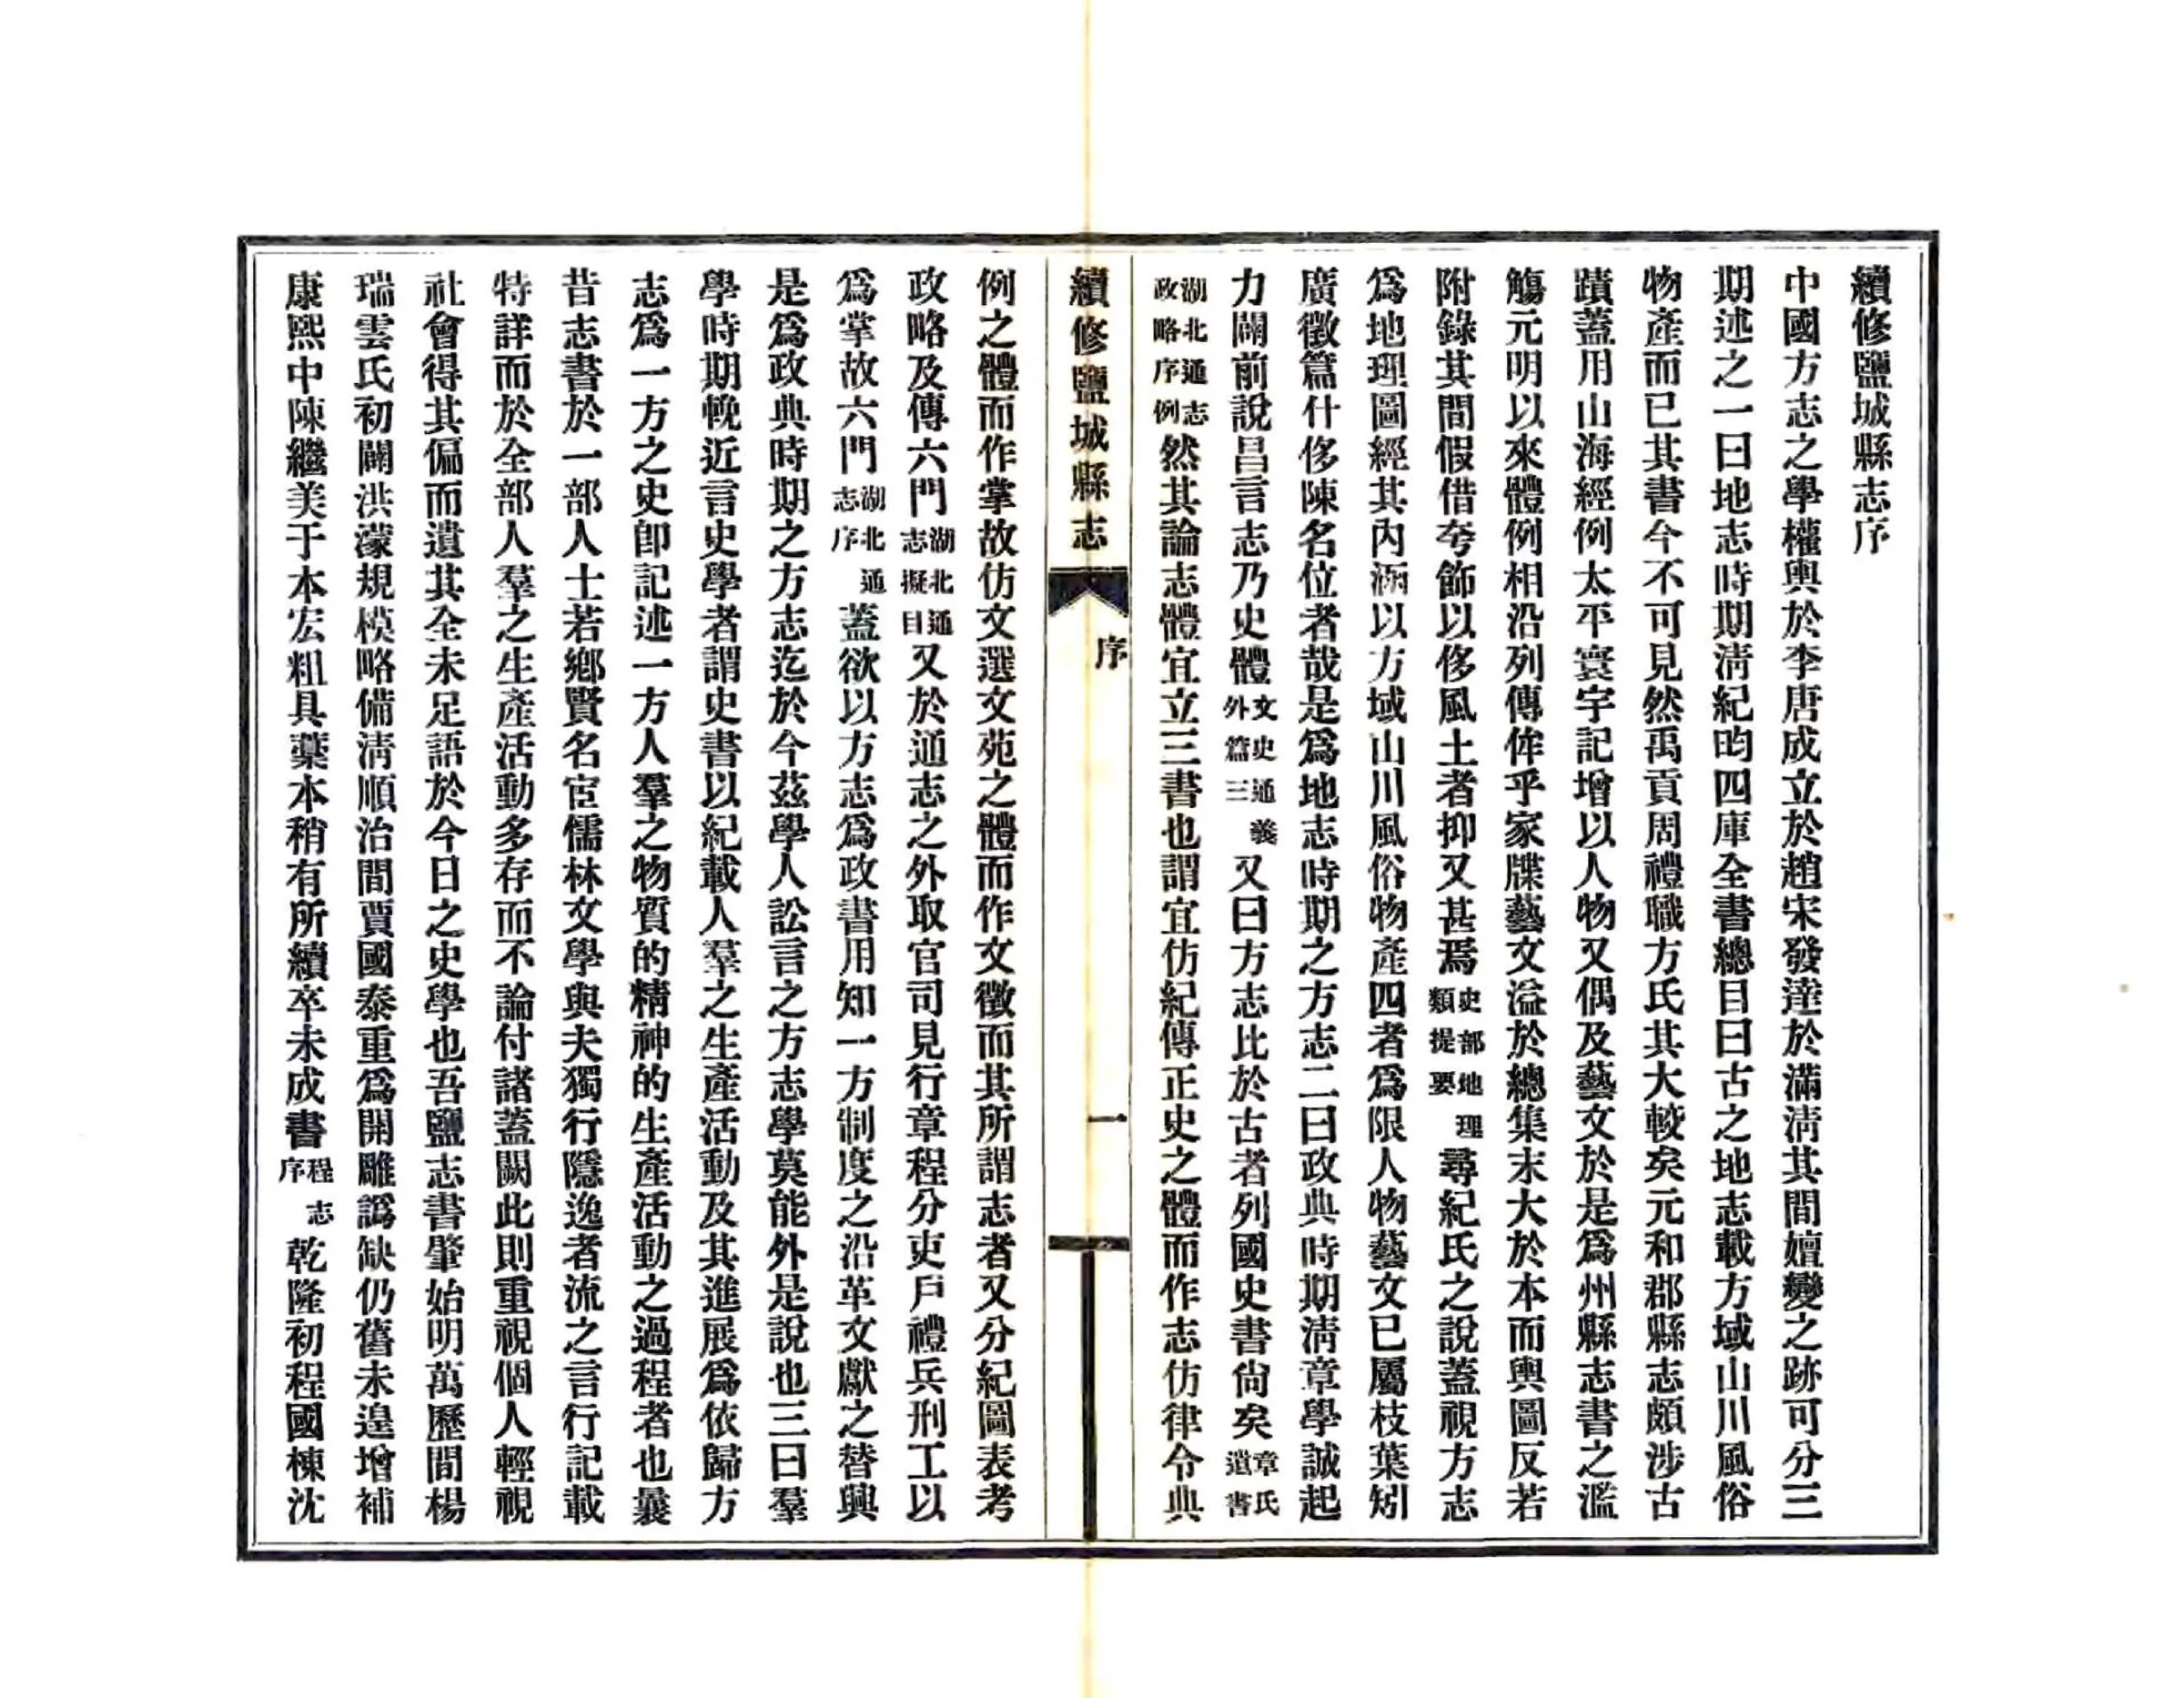 續修鹽城縣志序
中國方志之學權輿於李唐成立於趙宋發達於滿淸其間嬗變之跡可分三
期述之一曰地志時期淸紀昀四庫全書總目曰古之地志載方域山川風俗
物產而已其書今不可見然禹貢周禮職方氏其大較矣元和郡縣志頗涉古
蹟蓋用山海經例太平寰宇記增以人物又偶及藝文於是爲州縣志書之濫
觴元明以來體例相沿列傳侔乎家牒藝文溢於總集末大於本而輿圖反若
附錄其間假借夸飾以侈風土者抑又甚焉史部地理類提要尋紀氏之說蓋視方志
爲地理圖經其內涵以方域山川風俗物產四者爲限人物藝文已屬枝葉矧
廣徵篇什侈陳名位者哉是爲地志時期之方志二曰政典時期淸章學誠起
力闢前說昌言志乃史體文史通義外篇三又曰方志比於古者列國史書尙矣章氏遺書
湖北通志政略序例然其論志體宜立三書也謂宜仿紀傳正史之體而作志仿律令典
續修鹽城縣志
序
一
例之體而作掌故仿文選文苑之體而作文徵而其所謂志者又分紀圖表考
政略及傳六門湖北通志擬目又於通志之外取官司見行章程分吏戶禮兵刑工以
爲掌故六門湖北通志序蓋欲以方志爲政書用知一方制度之沿革文獻之替興
是爲政典時期之方志迄於今茲學人訟言之方志學莫能外是說也三曰羣
學時期輓近言史學者謂史書以紀載人羣之生產活動及其進展爲依歸方
志爲一方之史卽記述一方人羣之物質的精神的生產活動之過程者也曩
昔志書於一部人士若鄉賢名宦儒林文學與夫獨行隱逸者流之言行記載
特詳而於全部人羣之生產活動多存而不論付諸蓋闕此則重視個人輕視
社會得其偏而遺其全未足語於今日之史學也吾鹽志書肇始明萬歷間楊
瑞雲氏初闢洪濛規模略備淸順治間賈國泰重爲開雕譌缺仍舊未遑增補
康熙中陳繼美于本宏粗具藁本稍有所續卒未成書程志序乾隆初程國棟沈